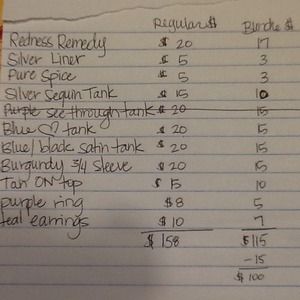 Regular $ Bundle $
Redness Remedy $ 20 17
Silver Liner $ 5 3
Pure Spice $ 5 3
Silver Sequin Tank $ 15 10
Purple see through tank $ 20 15
Blue ♡ tank $ 20 15
Blue/black satin tank $ 20 15
Burgundy 3/4 Sleeve $ 20 15
Tan ON top $ 15 10
purple ring $8 5
teal earrings $ 10 7
$ 158 $115
-15
$ 100